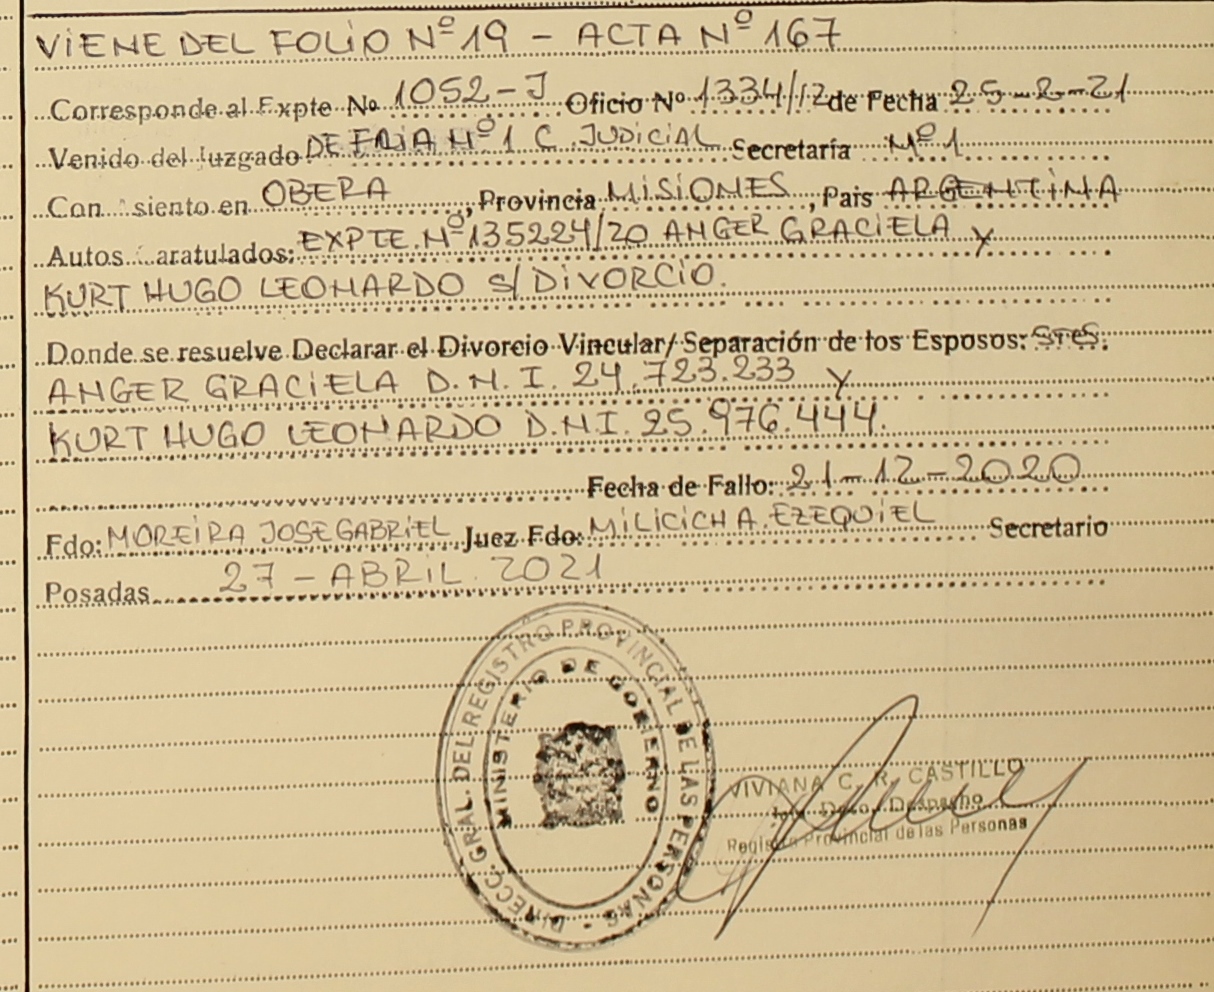 VIENE DEL FOLIO Nº 19 - ACTA Nº 167
Corresponde al Expte Nº 1052-J Oficio Nº 1334/12 de Fecha 25-2-21
Venido del Juzgado DE FLIA Nº 1 C. JUDICIAL Secretaría Nº 1
Con siento en OBERA, Provincia MISIONES, País ARGENTINA
Autos aratulados: EXPTE. Nº 135224/20 ANGER GRACIELA Y
KURT HUGO LEONARDO S/ DIVORCIO.
Donde se resuelve Declarar el Divorcio Vincular/ Separación de los Esposos: STES.
ANGER GRACIELA D.N.I. 24.723.233 Y
KURT HUGO LEONARDO D.N.I. 25.976.444.
Fecha de Fallo: 21-12-2020
Fdo: MOREIRA JOSE GABRIEL Juez Fdo: MILICICH A. EZEQUIEL Secretario
Posadas 27-ABRIL. 2021
DIRECC. GRAL. DEL REGISTRO PROVINCIAL DE LAS PERSONAS
MINISTERIO DE GOBIERNO
VIVIANA C. R. CASTILLO
Despacho
Registro Provincial de las Personas